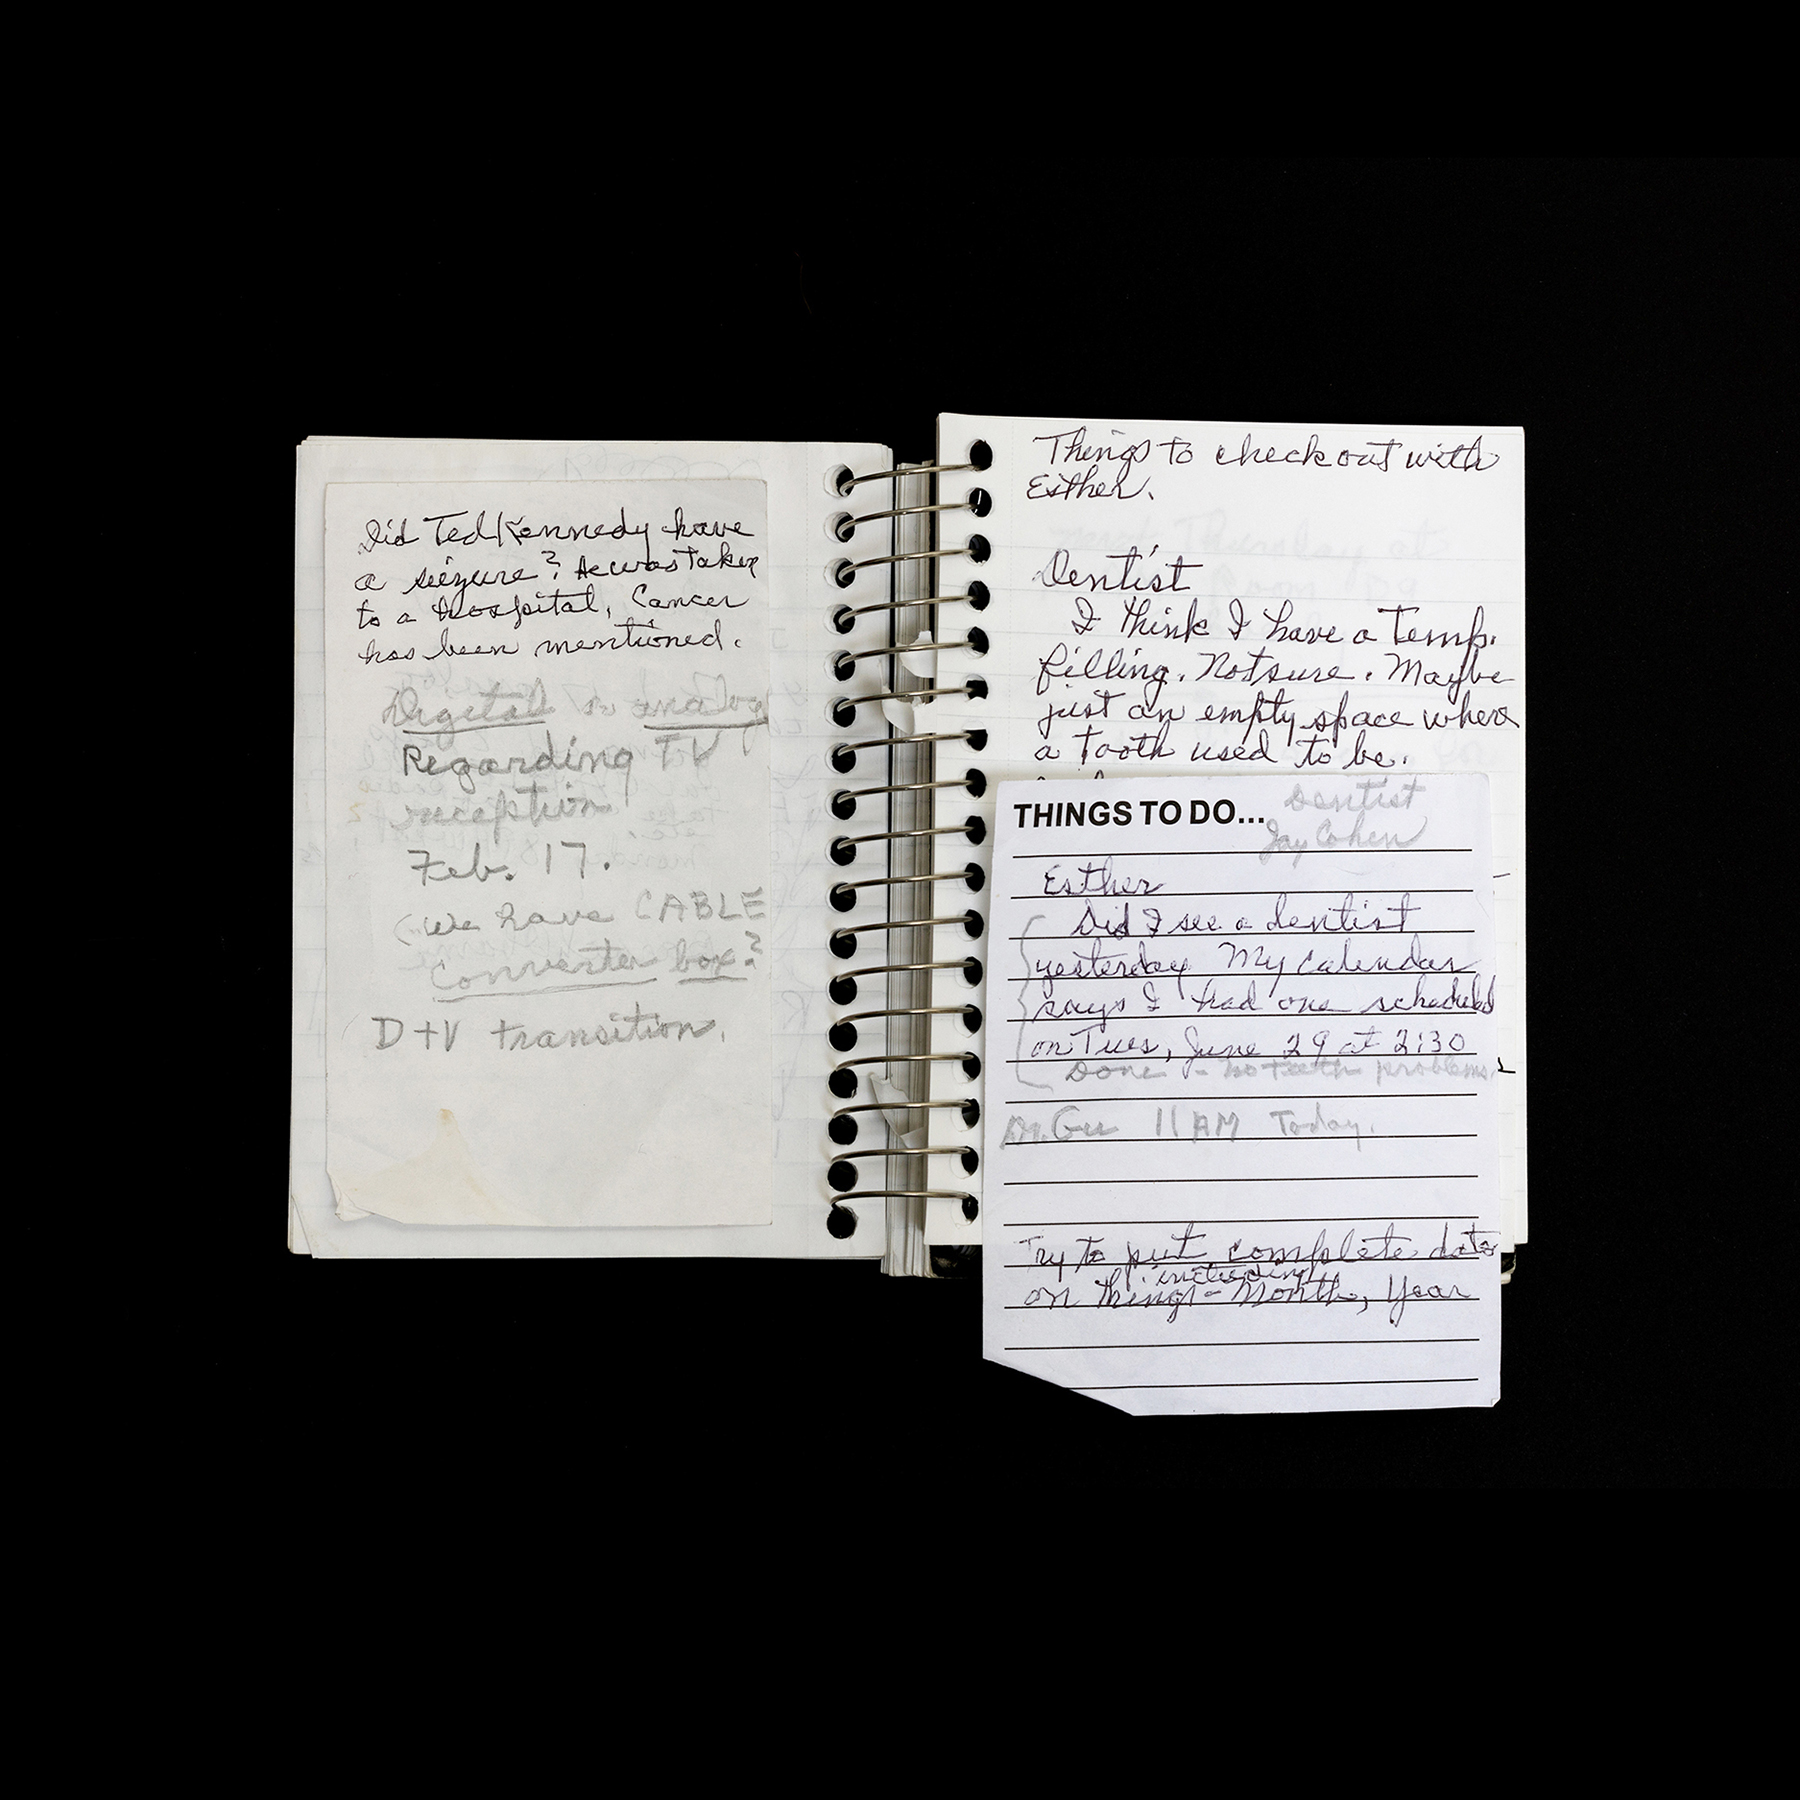 Did Ted Kennedy have
a seizure? He was taken
to a hospital, Cancer
has been mentioned.
Digital vs analog
Regarding TV
reception
Feb. 17.
(We have CABLE
Converter box?
DTV transition.
Things to check out with
Esther.
Dentist
I think I have a temp.
filling. Not sure. Maybe
just an empty space where
a tooth used to be.
THINGS TO DO...
Dentist
Jay Cohen
Esther
Did I see a dentist
yesterday My calendar
says I had one scheduled
on Tues, June 29 at 2:30
Done - no teeth problems.
Dr. Gu 11 AM Today.
Try to put complete date
on things - including Month, Year